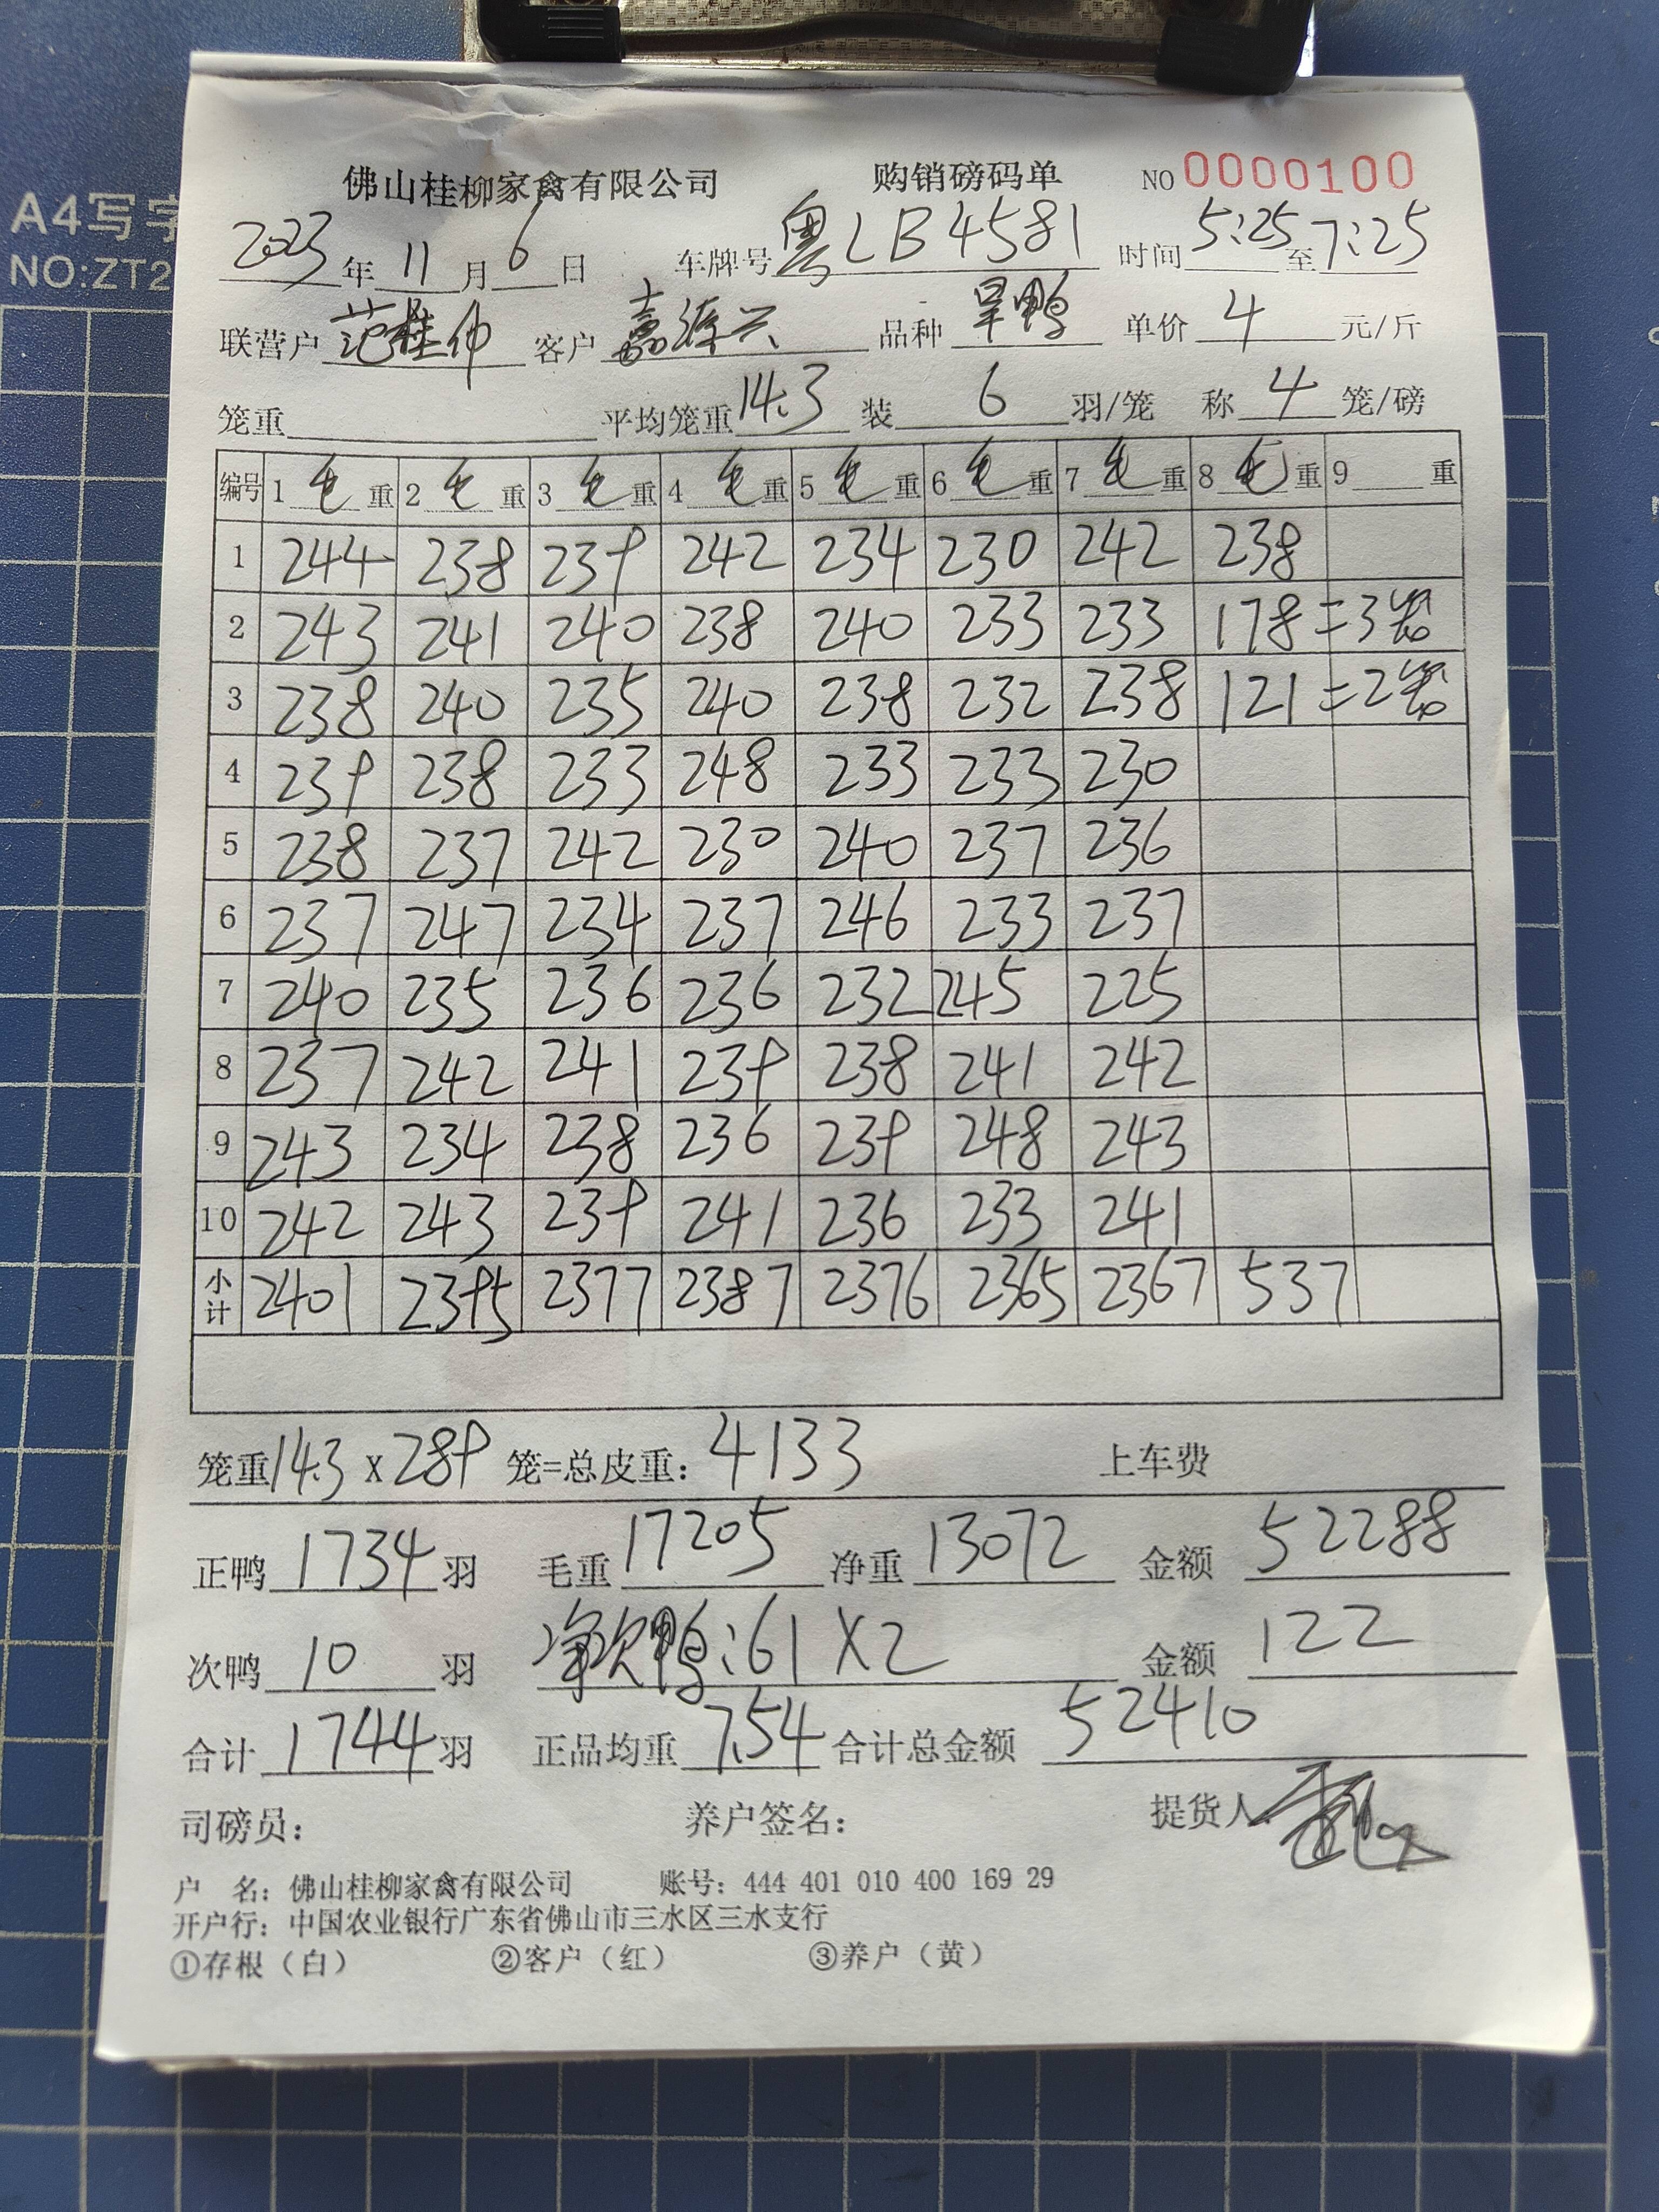 A4写字
NO:ZT2
佛山桂柳家禽有限公司 购销磅码单 NO 0000100
2023年 11月 6日 车牌号 粤LB4581 时间 5:25 至 7:25
联营户 范桂仲 客户 嘉源兴 品种 旱鸭 单价 4 元/斤
笼重 平均笼重 14.3 装 6 羽/笼 称 4 笼/磅
编号 1 毛 重 2 毛 重 3 毛 重 4 毛 重 5 毛 重 6 毛 重 7 毛 重 8 毛 重 9 重
1 244 238 239 242 234 230 242 238
2 243 241 240 238 240 233 233 178 =3笼
3 238 240 235 240 238 232 238 121 =2笼
4 239 238 233 248 233 233 230
5 238 237 242 230 240 237 236
6 237 247 234 237 246 233 237
7 240 235 236 236 232 245 225
8 237 242 241 239 238 241 242
9 243 234 238 236 239 248 243
10 242 243 239 241 236 233 241
小计 2401 2395 2377 2387 2376 2365 2367 537
笼重 14.3 X 289 笼=总皮重: 4133 上车费
正鸭 1734 羽 毛重 17205 净重 13072 金额 52288
次鸭 10 羽 净次鸭:61X2 金额 122
合计 1744 羽 正品均重 7.54 合计总金额 52410
司磅员: 养户签名: 提货人
户 名: 佛山桂柳家禽有限公司 账号: 444 401 010 400 169 29
开户行: 中国农业银行广东省佛山市三水区三水支行
①存根(白) ②客户(红) ③养户(黄)